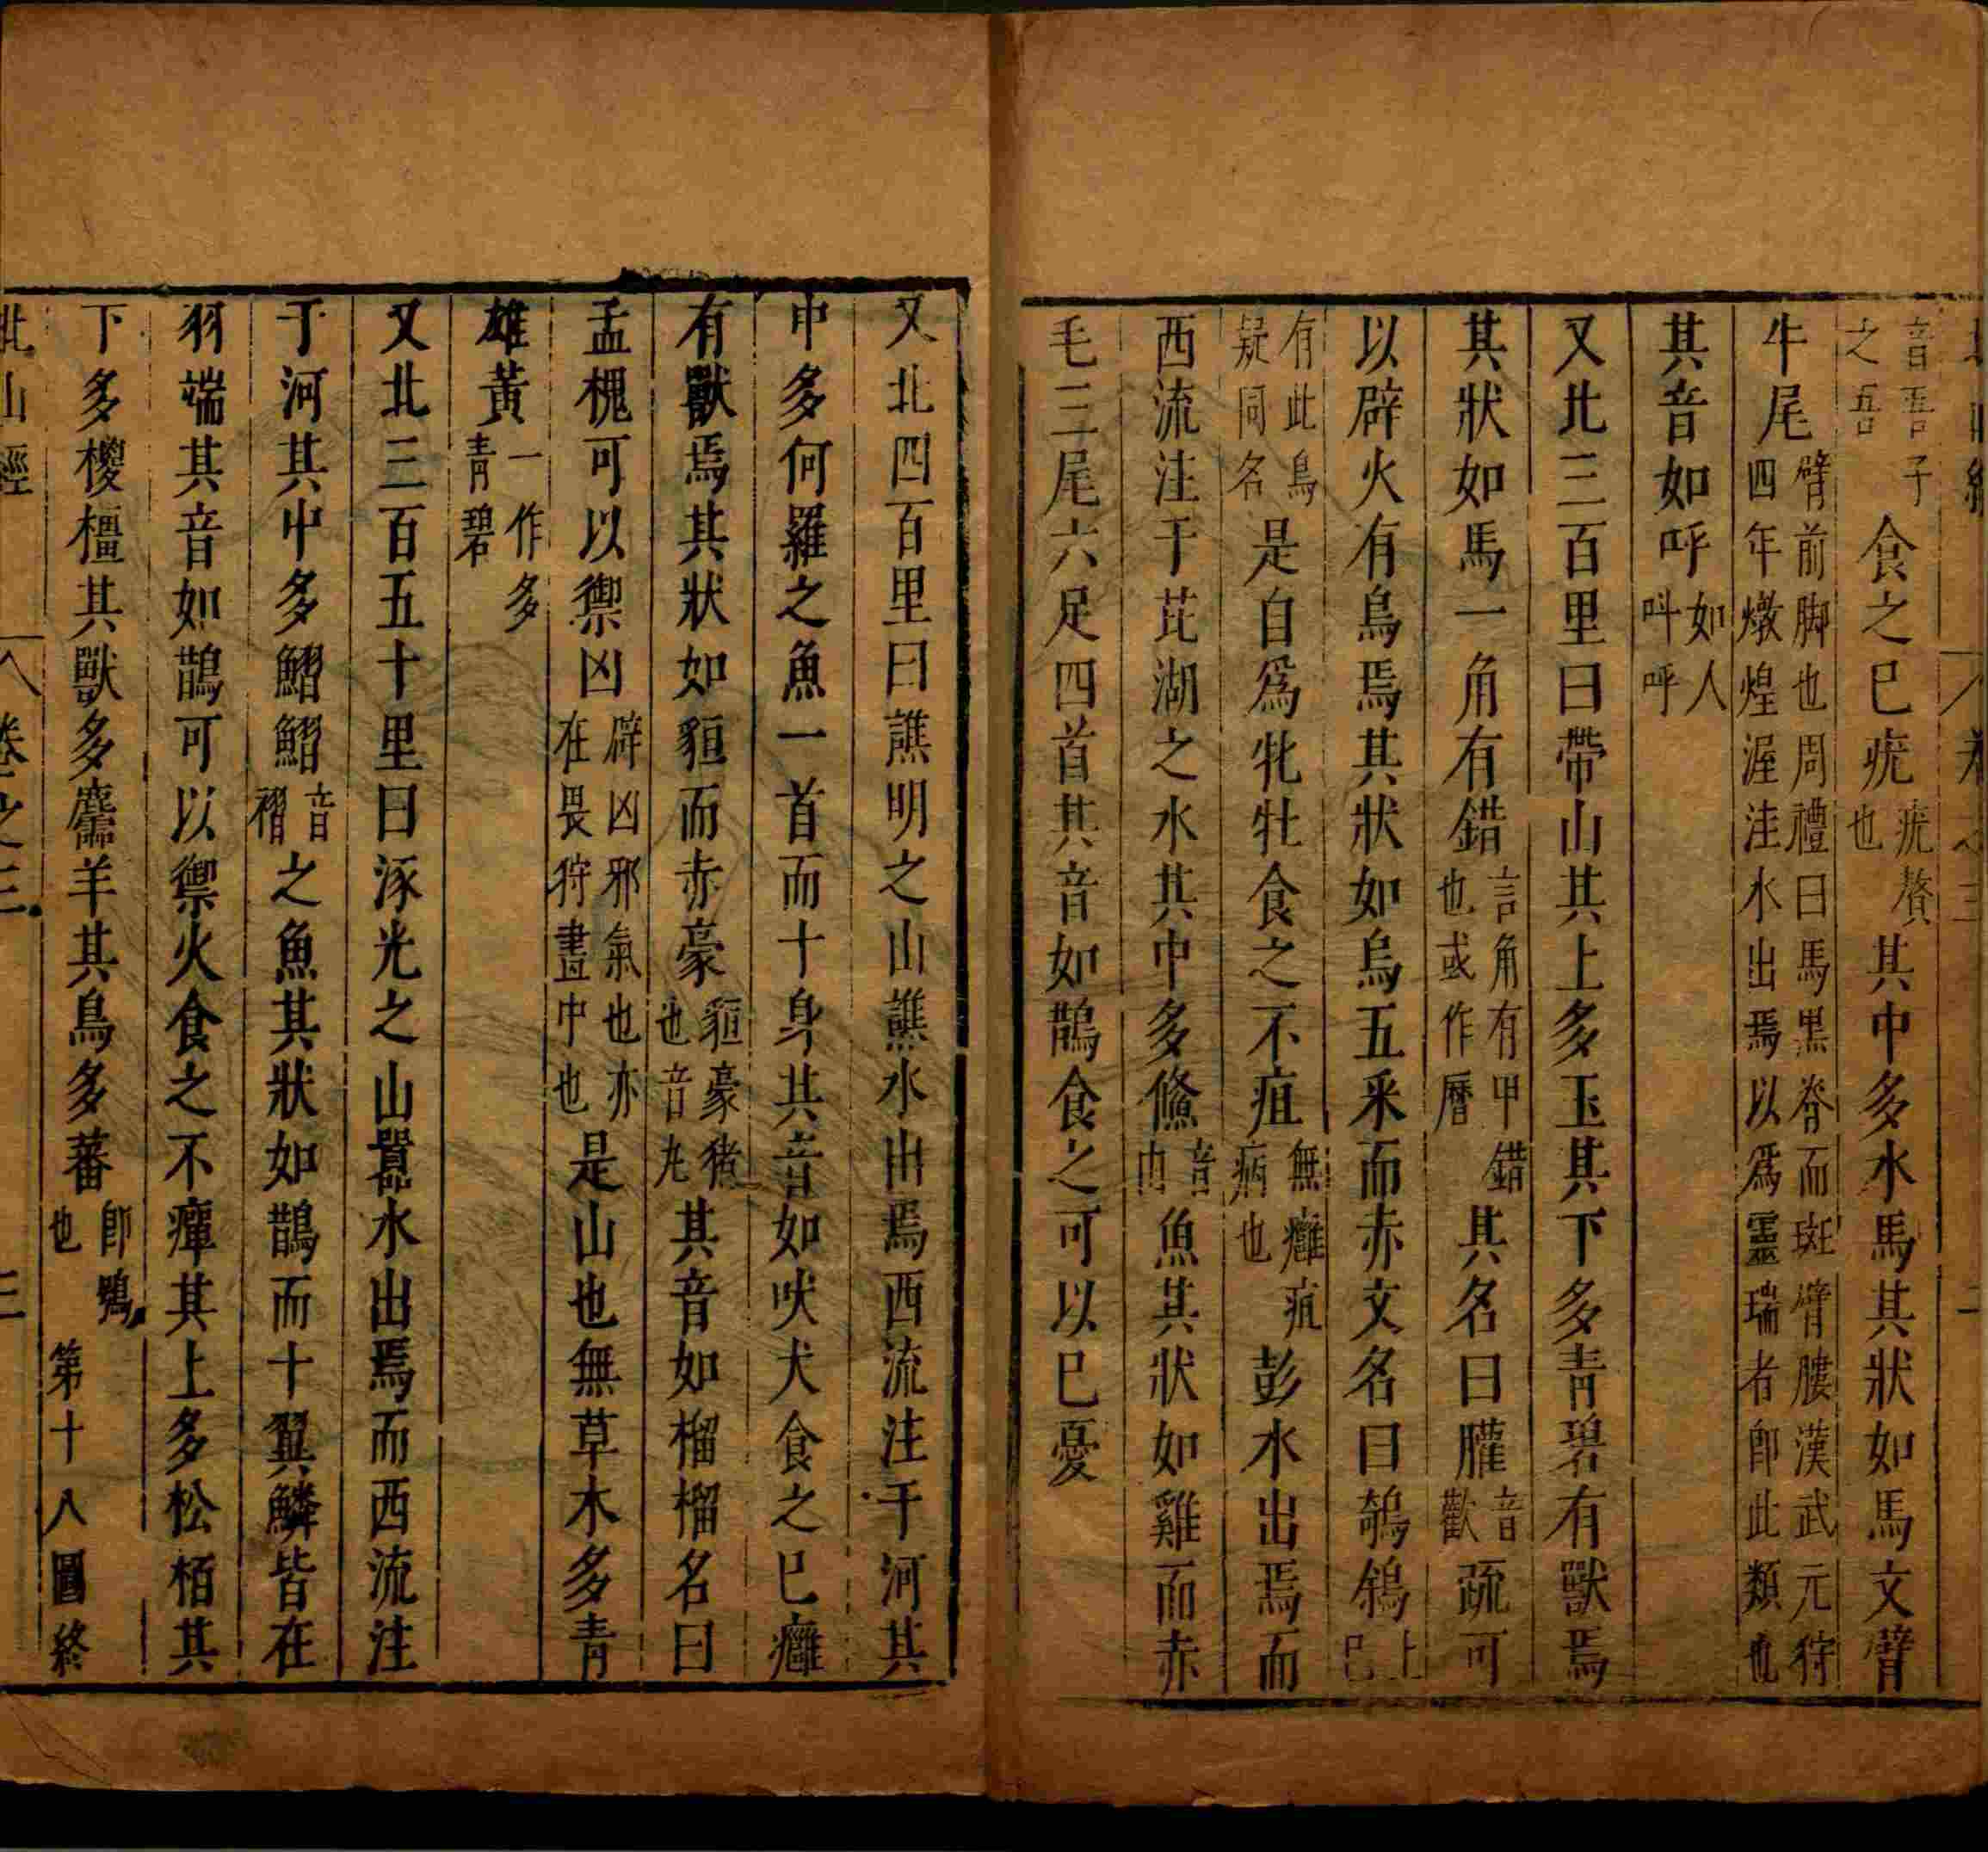 音吾子之吾食之已疣疣贅也其中多水馬其狀如馬文臂
牛尾臂前脚也周禮曰馬黑脊而斑臂膢漢武元狩四年燉煌渥洼水出焉以爲靈瑞者即此類也
其音如呼如人叫呼
又北三百里曰帶山其上多玉其下多青碧有獸焉
其狀如馬一角有錯言角有甲錯也或作厝其名曰䑏音歡疏可
以辟火有鳥焉其狀如烏五采而赤文名曰鵸鵌上已
有此鳥疑同名是自爲牝牡食之不疽無癰疽病也彭水出焉而
西流注于芘湖之水其中多儵音由魚其狀如雞而赤
毛三尾六足四首其音如鵲食之可以已憂
又北四百里曰譙明之山譙水出焉西流注于河其
中多何羅之魚一首而十身其音如吠犬食之已癰
有獸焉其狀如貆而赤豪貆豪猪也音丸其音如榴榴名曰
孟槐可以禦凶辟凶邪氣也亦在畏狩畫中也是山也無草木多青
雄黃一作多青碧
又北三百五十里曰涿光之山嚻水出焉而西流注
于河其中多鰼鰼音褶之魚其狀如鵲而十翼鱗皆在
羽端其音如鵲可以禦火食之不癉其上多松栢其
下多椶橿其獸多麢羊其鳥多蕃即鴞也 第十八圖終
北山經 卷之三 三